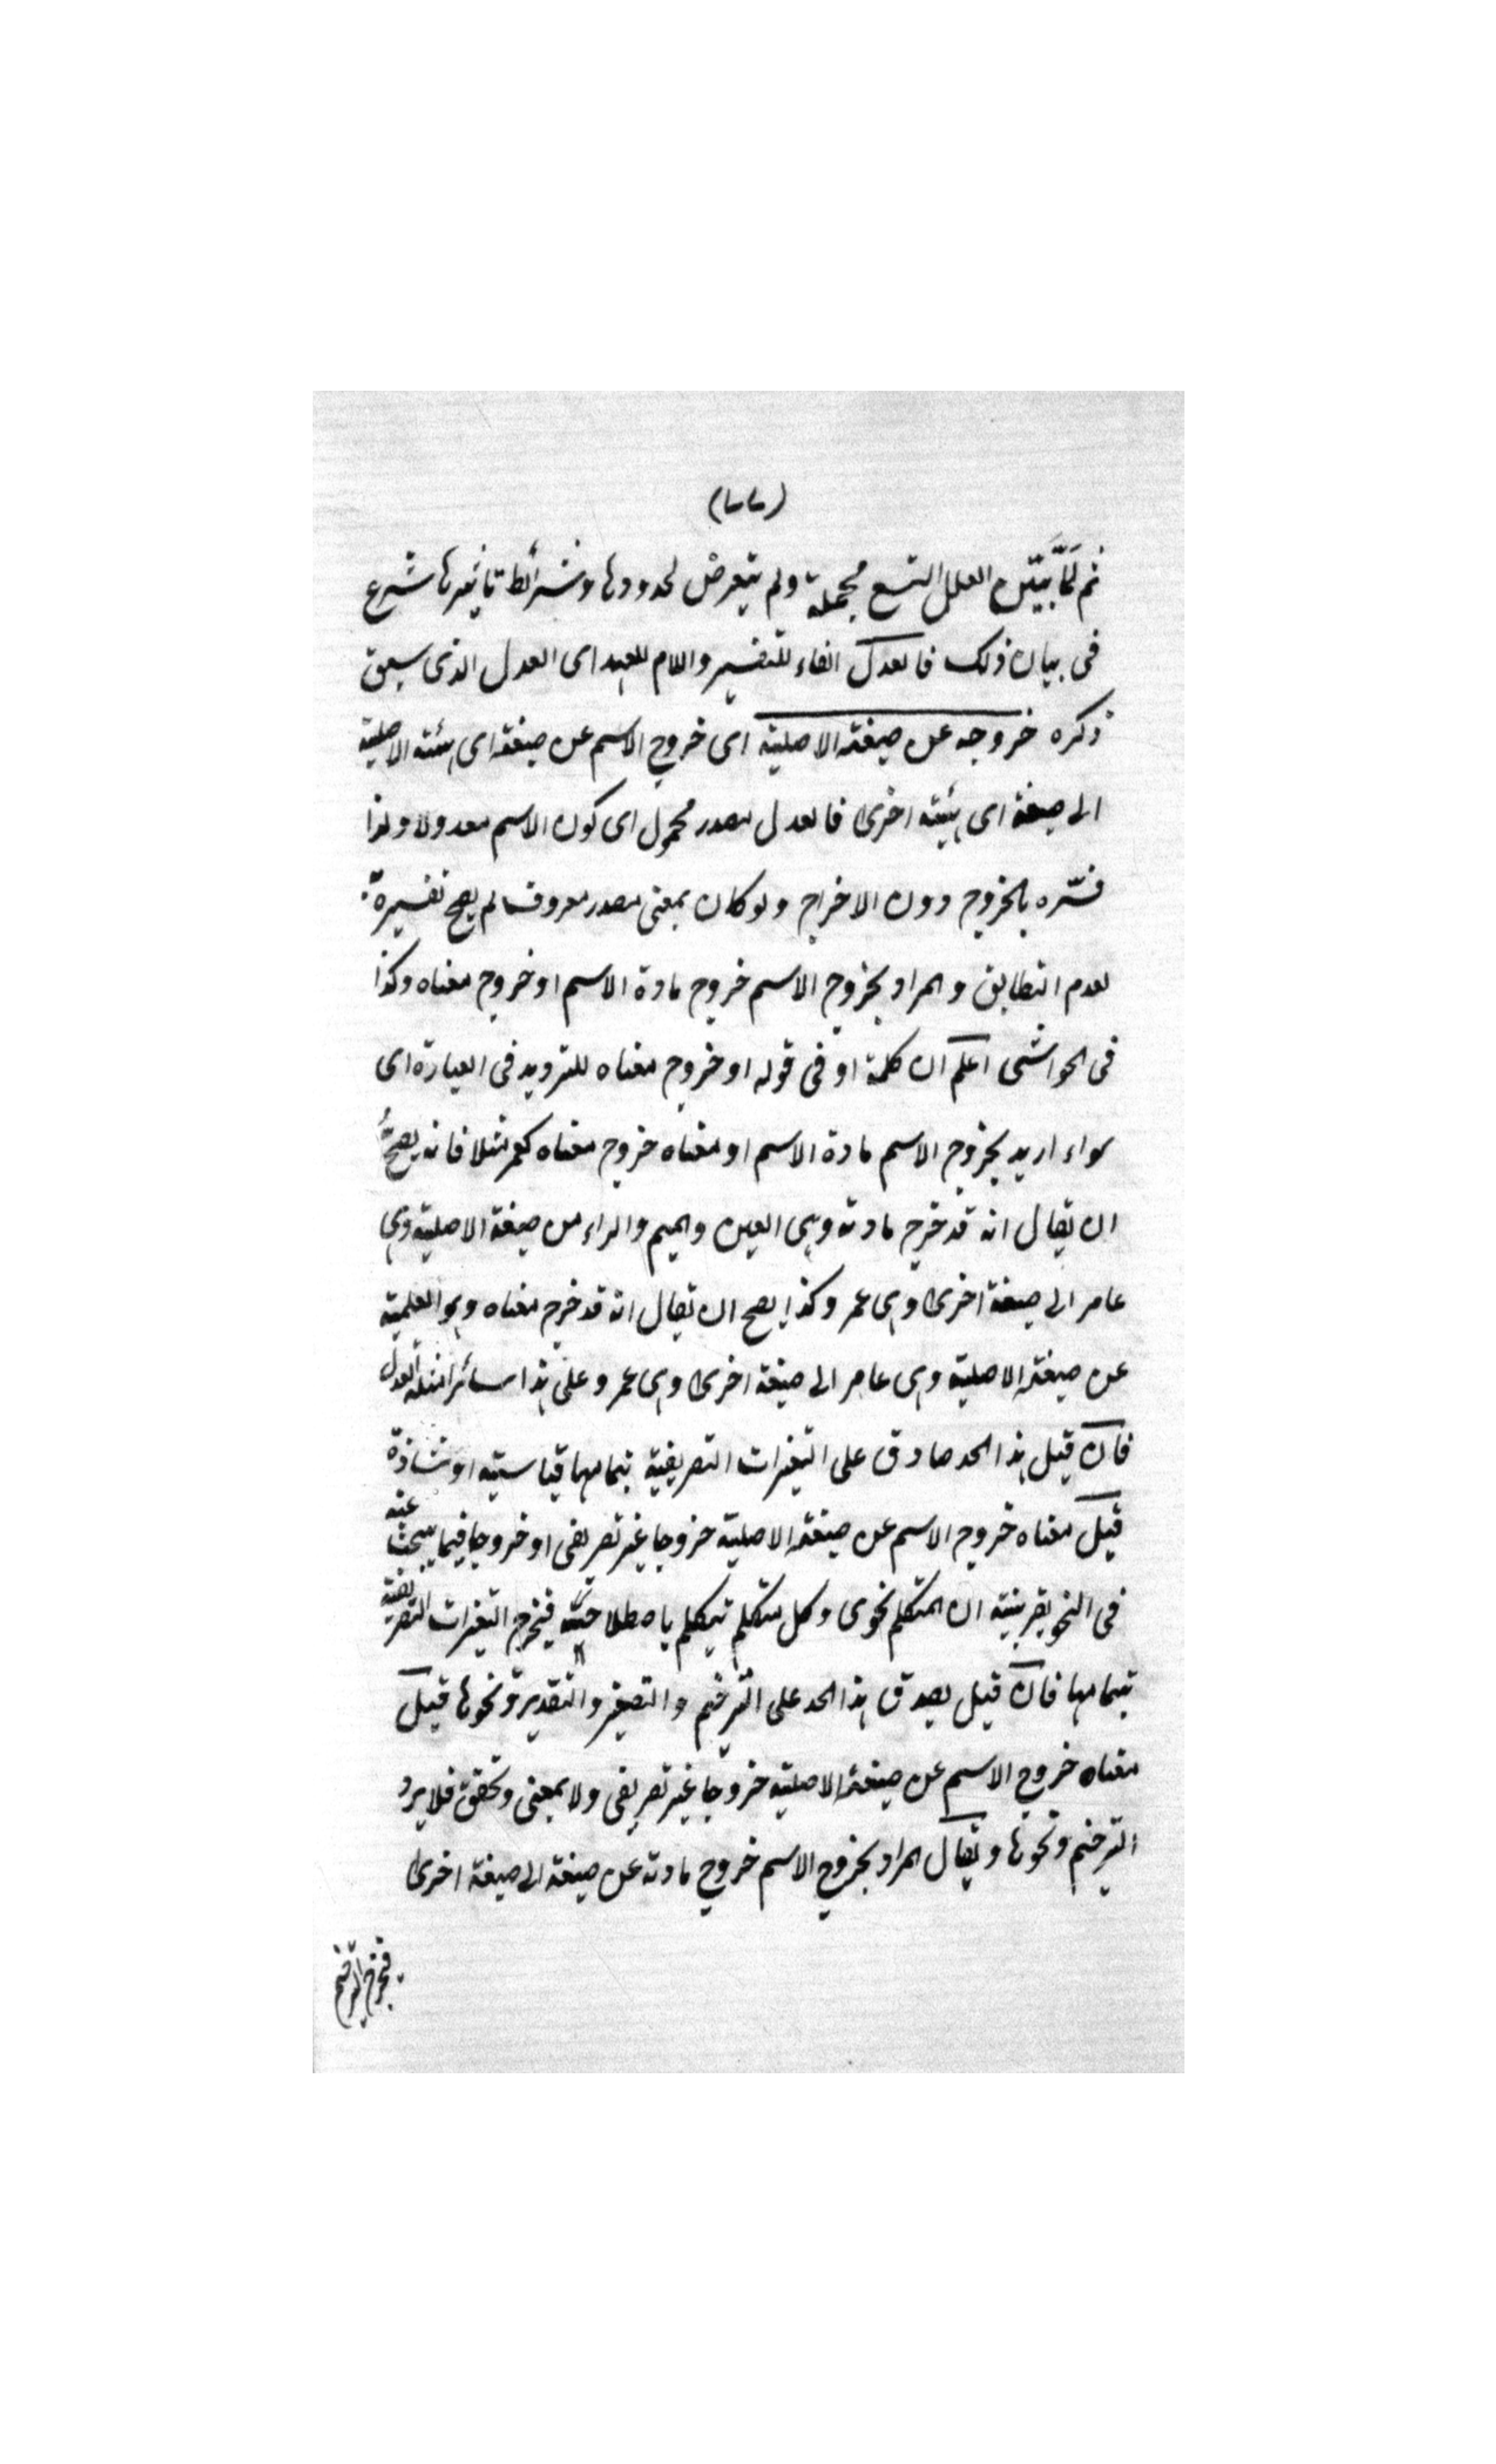 (٣٣)
ثم لَمَّا بَيَّن العلل التسع مجملة ولم يتعرض لحدودها وشرائط تاثيرها شرع
فى بيان ذلك فالعدل الفاء للتفسير واللام للعهد اى العدل الذى سبق
ذكره خروجه عن صيغته الاصلية اى خروج الاسم عن صيغته اى هيئته الاصلية
الى صيغة اى هيئة اخرى فالعدل مصدر مجهول اى كون الاسم معدولا ولذا
فسّره بالخروج دون الاخراج ولو كان بمعنى مصدر معروف لم يصح تفسيره به
لعدم التطابق والمراد بخروج الاسم خروج مادة الاسم او خروج معناه وكذا
فى الحواشى اعلم ان كلمة او فى قوله او خروج معناه للترديد فى العبارة اى
سواء اريد بخروج الاسم مادة الاسم او معناه خروج معناه كعمر مثلا فانه يصحُّ
ان يقال انه قد خرج مادته وهى العين والميم والراء من صيغة الاصلية وهى
عامر الى صيغة اخرى وهى عمر وكذا يصح ان يقال انه قد خرج معناه وهو العلمية
عن صيغة الاصلية وهى عامر الى صيغة اخرى وهى عمر وعلى هذا سائر امثلة العدل
فان قيل هذا الحد صادق على التغيرات التصريفية بتمامها قياسية او شاذة
قيل معناه خروج الاسم عن صيغة الاصلية خروجا غير تصريفى او خروجا فيما يبحث عنه
فى النحو بقرينة ان المتكلم نحوى وكل متكلم يتكلم باصطلاحه فيخرج التغيرات التصريفية
بتمامها فان قيل يصدق هذا الحد على الترخيم والتصغير والتقدير ونحوها قيل
معناه خروج الاسم عن صيغة الاصلية خروجا غير تصريفى ولا بمعنى وتحقق فلا يرد
الترخيم ونحوها ويقال المراد بخروج الاسم خروج مادته عن صيغة الى صيغة اخرى
فيخرج الترخيم